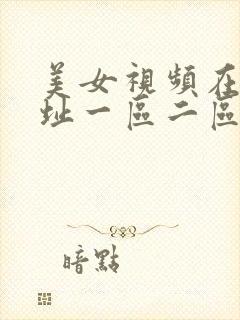 美女視頻在
址一區二區
暗點